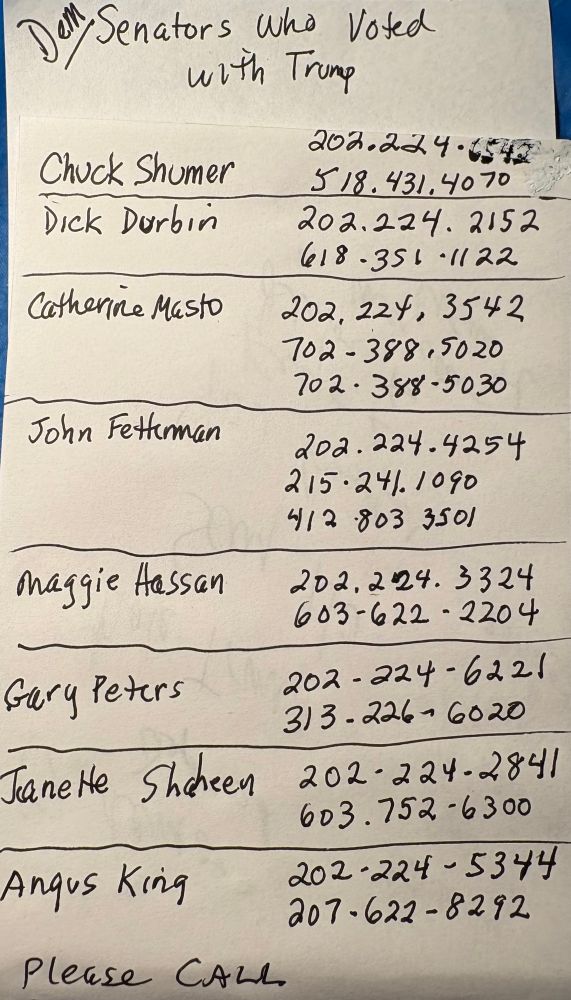 Dem/Senators who Voted
with Trump
202.224.6542
Chuck Shumer 518.431.4070
Dick Durbin 202.224.2152
618-351-1122
Catherine Masto 202.224.3542
702-388.5020
702.388-5030
John Fetterman
202.224.4254
215.241.1090
412 803 3501
Maggie Hassan 202.224.3324
603-622-2204
Gary Peters 202-224-6221
313-226-6020
Janette Shaheen 202-224-2841
603.752-6300
Angus King 202-224-5344
207-622-8292
Please CALL